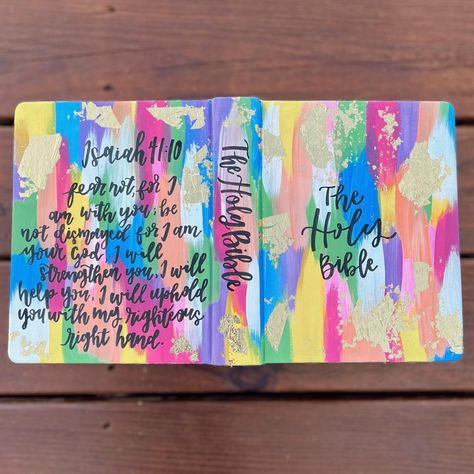 Isaiah 41:10
fear not, for I
am with you; be
not desmayed for I am
your God. I will
strengthen you, I will
help you, I will uphold
you with my righteous
right hand.
The Holy Bible
The
Holy
Bible